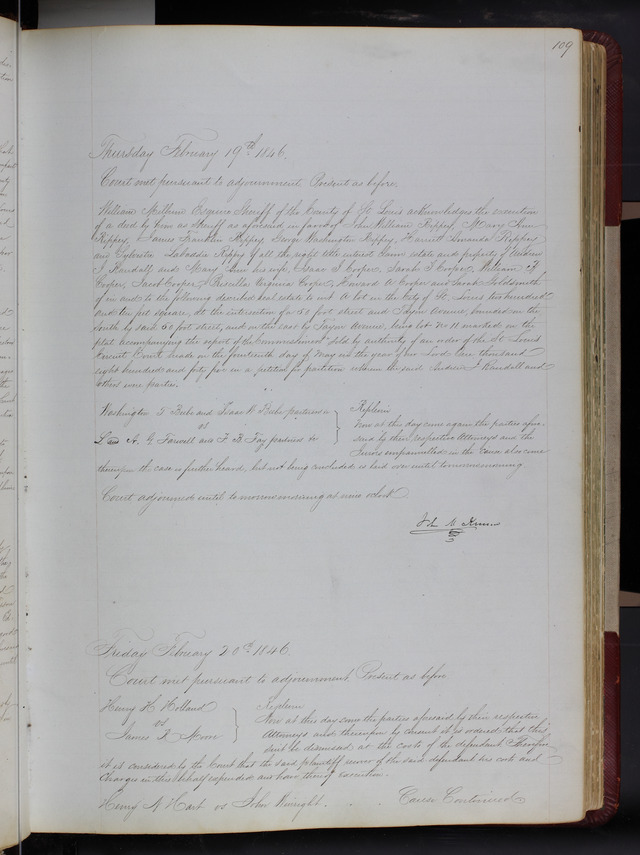 109
Thursday February 19th 1846.
Court met pursuant to adjournment. Present as before.
William Milburn Esquire Sheriff of the County of St Louis acknowledges the execution
of a deed by him as sheriff as aforesaid in favor of John William Rippey, Mary Ann
Rippey, James Franklin Rippey, George Washington Rippey, Harriett Amanda Rippey
and Sylvester Labaddie Rippey of all the right title interest claim estate and property of Andrew
J. Randall and Mary Ann his wife, Isaac S Cooper, Sarah S Cooper, William
Cooper, Jacob Cooper, Priscilla Virginia Cooper, Howard A Cooper and Sarah Goldsmith
of in and to the following described real estate to wit A lot in the City of St. Louis two hundred
and ten feet square, at the intersection of a 50 foot street and Tayon Avenue, bounded on the
South by said 50 foot street, and on the East by Tayon Avenue, being lot No 11 marked on the
plat accompanying the report of the Commissioners sold by authority of an order of the St. Louis
Circuit Court made on the fourteenth day of May in the year of our Lord One thousand
eight hundred and forty five in a petition for partition wherein the said Andrew J Randall and
others were parties.
Washington G Beebe and Isaac W Beebe partners &c
vs
L and A. G Farwell and F B Fay partners &c
Replevin
Now at this day come again the parties afore-
said by their respective Attorneys and the
Jurors empannelled in the cause also come
thereupon the case is further heard, but not being concluded is laid over until tomorrow morning
Court adjourned until tomorrow morning at nine oclock.
John M
Friday February 20th 1846.
Court met pursuant to adjournment Present as before
Henry H. Holland
vs
James D Moore
Replevin
Now at this day come the parties aforesaid by their respective
Attorneys and thereupon by consent it is ordered that this
suit be dismissed at the costs of the defendant Therefore
it is considered by the Court that the said plaintiff recover of the said defendant his costs and
Charges in this behalf expended and have thereof execution.
Henry N Hart vs John Knight. Cause Continued